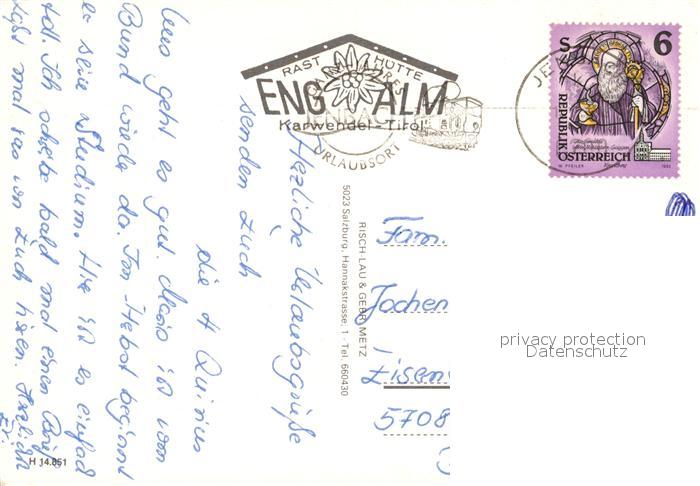 Herzliche Urlaubsgrüße
senden Euch
die 4 Quirius
Uns geht es gut. Mario ist vom
Bund wieder da. Im Herbst beginnt
er sein Studium. Hier ist es einfach
toll. Ich schreibe bald mal einen Brief.
Laßt mal was von Euch hören. Herzlichst
H 14.851
RAST HÜTTE
ENG ALM
Karwendel-Tirol
URLAUBSORT
JEN
S 6
REPUBLIK
ÖSTERREICH
W. PFEILER
RISCH-LAU & GEBR. METZ
5023 Salzburg, Hannakstrasse, 1 - Tel. 660430
Fam.
Jochen
Eisen
5708
privacy protection
Datenschutz